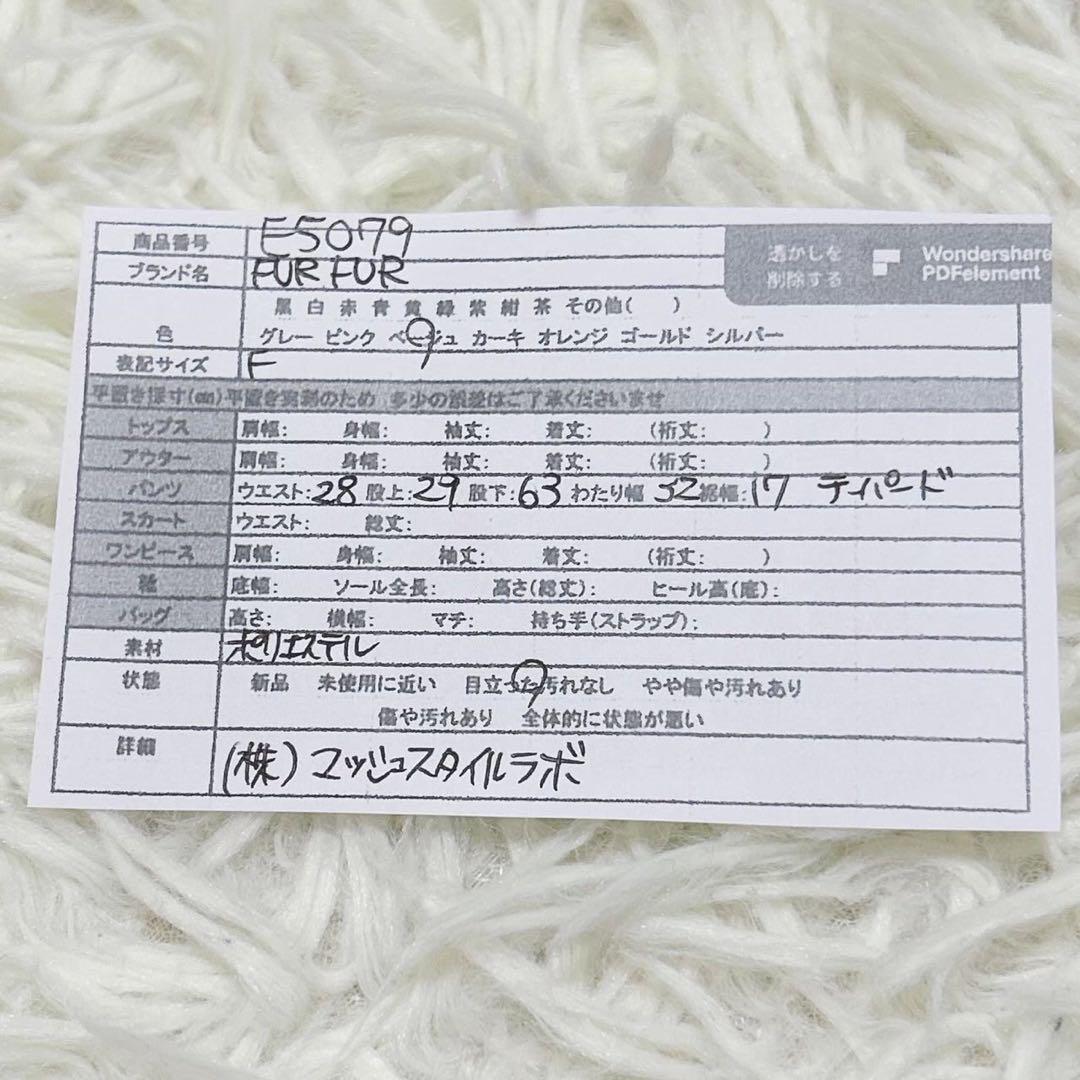 商品番号 E5079
ブランド名 FUR FUR
透かしを削除する Wondershare PDFelement
黒 白 赤 青 黄 緑 紫 紺 茶 その他( )
色 グレー ピンク ベージュ カーキ オレンジ ゴールド シルバー
表記サイズ F
平置き採寸(cm)平置き実測のため 多少の誤差はご了承くださいませ
トップス 肩幅: 身幅: 袖丈: 着丈: (裄丈: )
アウター 肩幅: 身幅: 袖丈: 着丈: (裄丈: )
パンツ ウエスト:28 股上:29 股下:63 わたり幅 32 裾幅:17 テーパード
スカート ウエスト: 総丈:
ワンピース 肩幅: 身幅: 袖丈: 着丈: (裄丈: )
靴 底幅: ソール全長: 高さ(総丈): ヒール高(底):
バッグ 高さ: 横幅: マチ: 持ち手(ストラップ):
素材 ポリエステル
状態 新品 未使用に近い 目立った汚れなし やや傷や汚れあり
傷や汚れあり 全体的に状態が悪い
詳細 (株)マッシュスタイルラボ